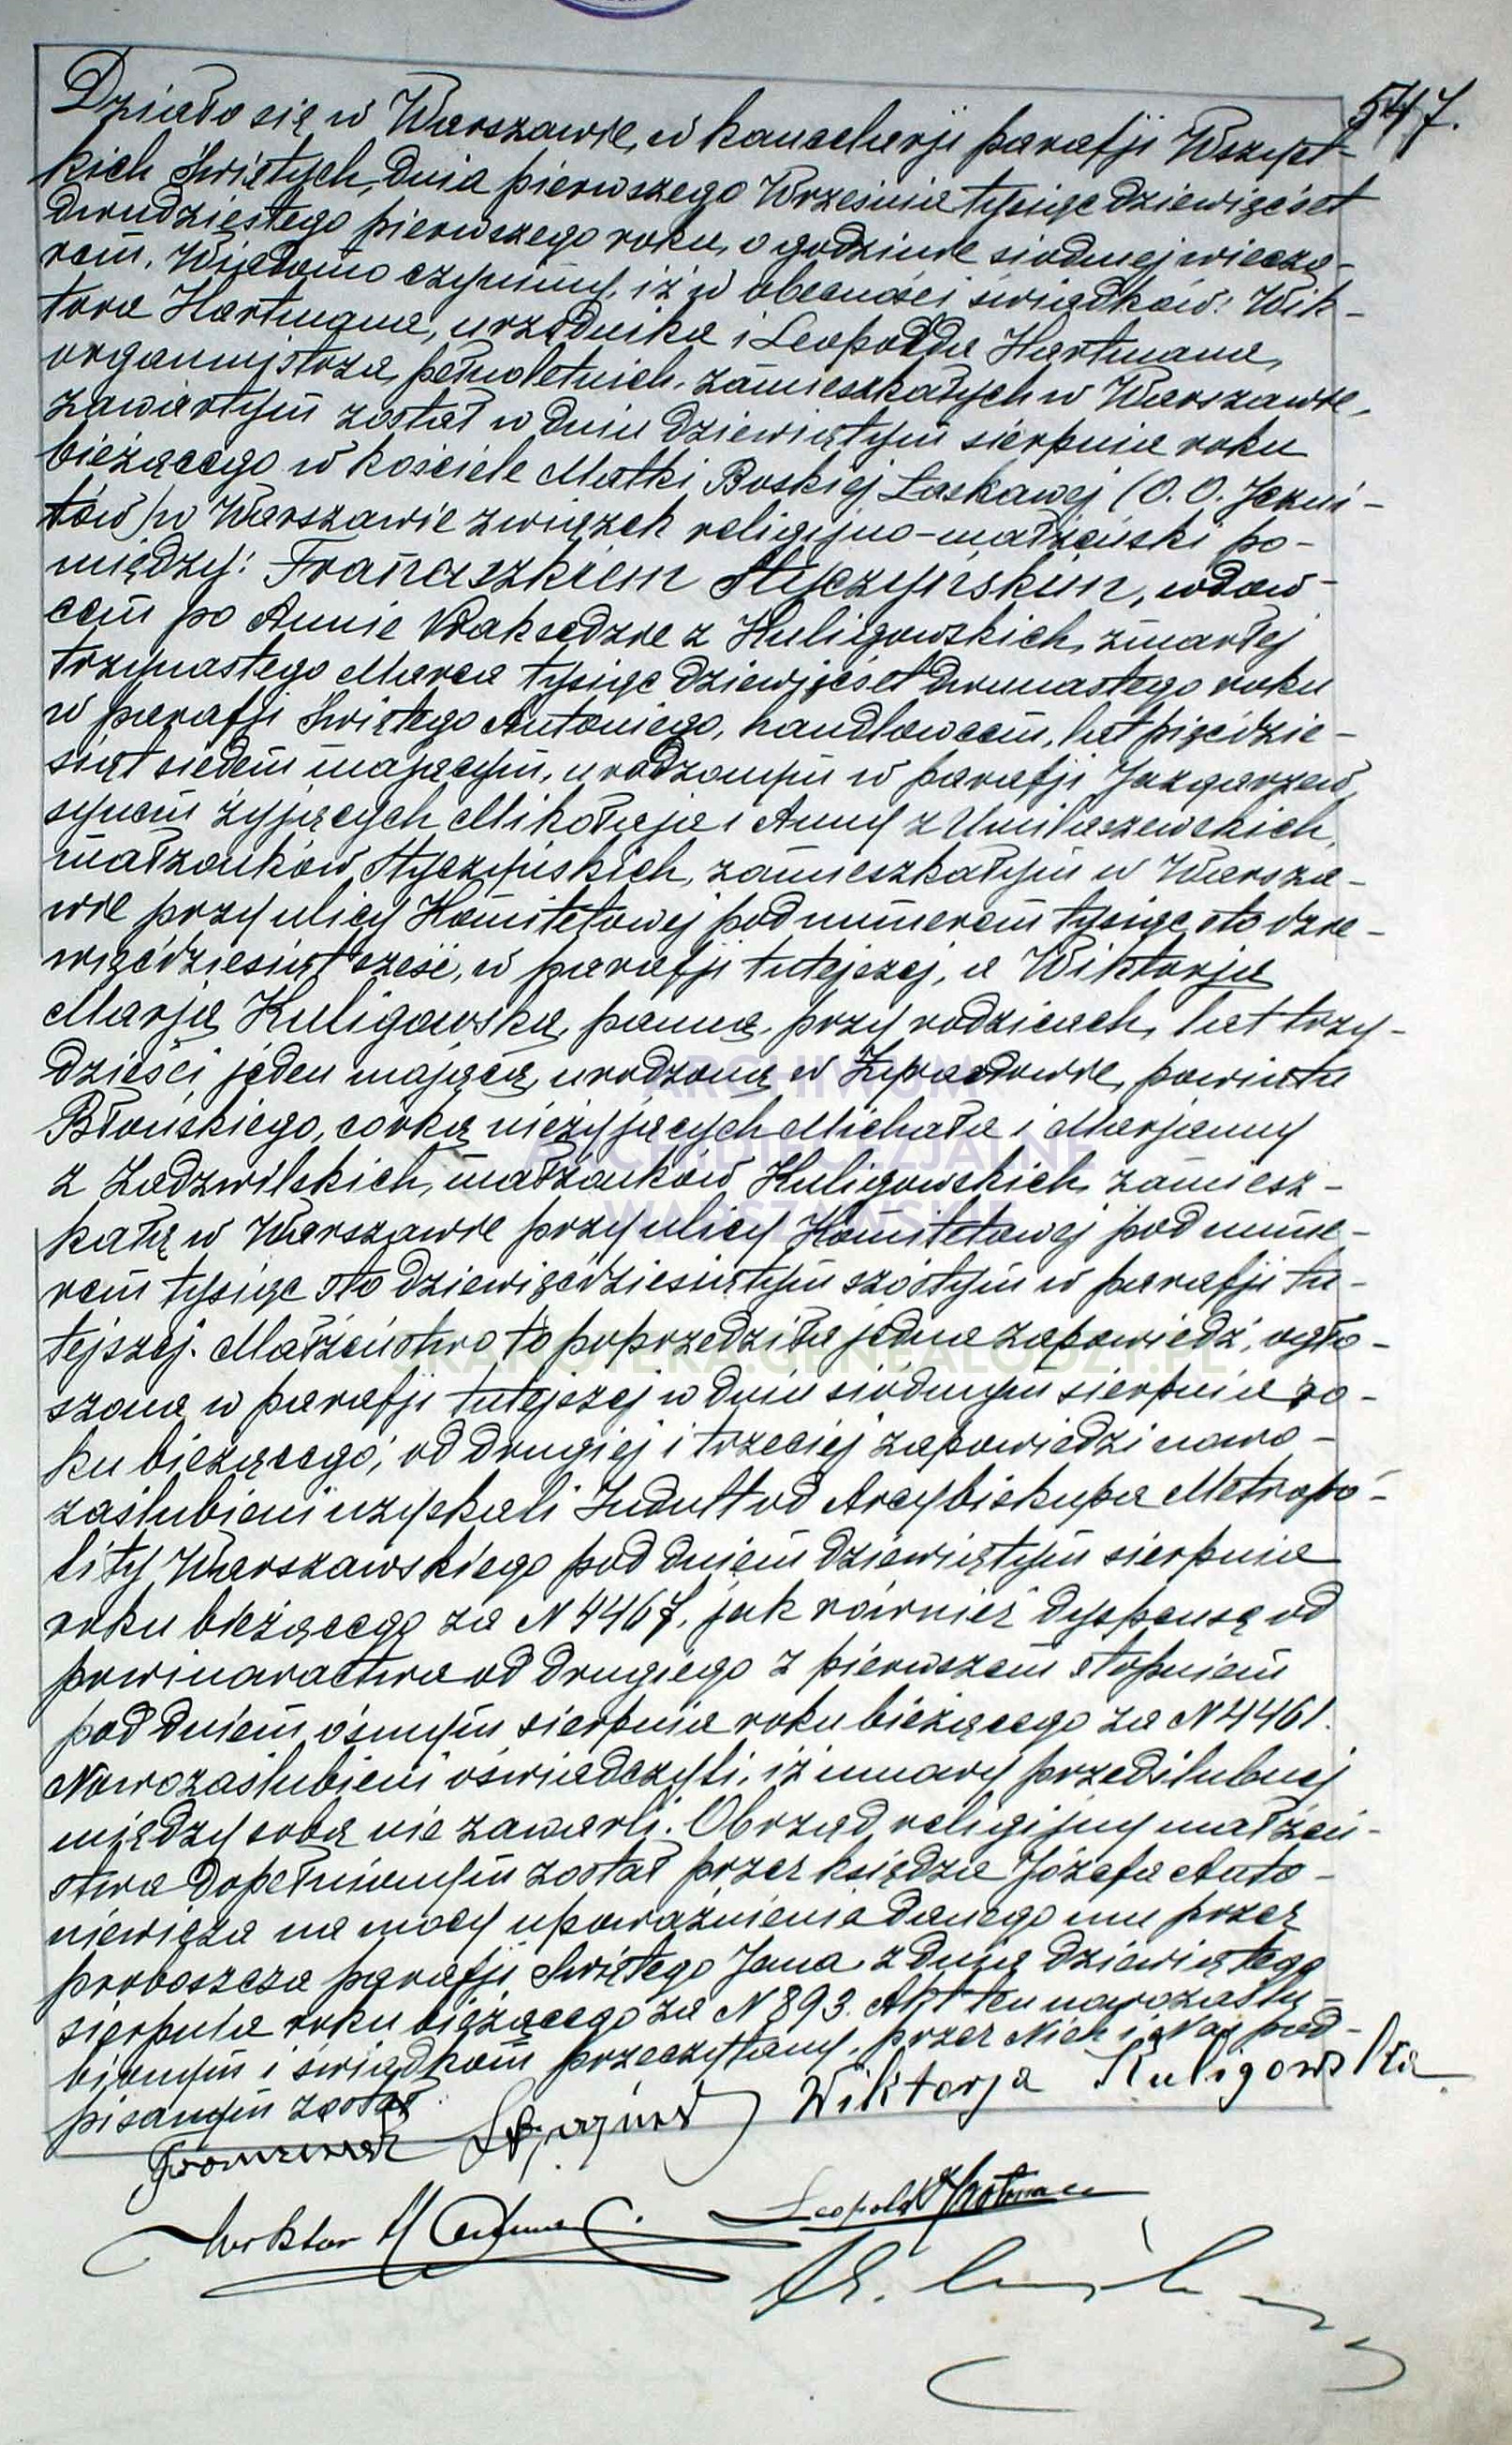 547.
Działo się w Warszawie, w kancelarji parafji Wszyst-
kich Świętych, dnia pierwszego Września tysiąc dziewięćset
dwudziestego pierwszego roku, o godzinie siódmej wieczo-
rem. Wiadomo czynimy, iż w obecności świadków: Wik-
tora Hartmana, urzędnika i Leopolda Hartmana,
organmistrza, pełnoletnich, zamieszkałych w Warszawie,
zawartym został w dniu dziewiątym sierpnia roku
bieżącego w kościele Matki Boskiej Łaskawej (O.O. Jezui-
tów) w Warszawie związek religijno-małżeński po-
między: Franciszkiem Styczyńskim, wdow-
cem po Annie z Kuligowskich, zmarłej
trzynastego Marca tysiąc dziewięćset dwunastego roku
w parafji Świętego Antoniego, handlowcem, lat pięćdzie-
siąt siedem mającym, urodzonym w parafji Jazgarzew,
synem żyjących Mikołaja i Anny z
małżonków Styczyńskich, zamieszkałym w Warsza-
wie przy ulicy Komitetowej pod numerem tysiąc sto dzie-
więćdziesiąt sześć, w parafji tutejszej, a Wiktorją
Marją Kuligowską, panną, przy rodzicach, lat trzy-
dzieści jeden mającą, urodzoną w powiatu
Błońskiego, córką nieżyjących Michała i Marjanny
z Zadzwilskich, małżonków Kuligowskich, zamiesz-
kałą w Warszawie przy ulicy Komitetowej pod nume-
rem tysiąc sto dziewięćdziesiątym szóstym w parafji tu-
tejszej. Małżeństwo to poprzedziła jedna zapowiedź, ogło-
szona w parafji tutejszej w dniu siódmym sierpnia ro-
ku bieżącego; od drugiej i trzeciej zapowiedzi nowo-
zaślubieni uzyskali Indult od Arcybiskupa Metropo-
lity Warszawskiego pod dniem dziewiątym sierpnia
roku bieżącego za N 4467, jak również dyspensę od
powinowactwa od drugiego z pierwszem stopniem
pod dniem ósmym sierpnia roku bieżącego za N 4461.
Nowozaślubieni oświadczyli, iż umowy przedślubnej
między sobą nie zawarli. Obrząd religijny małżeń-
stwa dopełnionym został przez księdza Józefa Anto-
niewicza na mocy upoważnienia danego mu przez
proboszcza parafji Świętego Jana z dnia dziewiątego
sierpnia roku bieżącego za N 893. Akt ten nowozaślu-
bionym i świadkom przeczytany, przez Nich i Nas pod-
pisanym został
Franciszek Styczyński Wiktorja Kuligowska
Wiktor Hartman. Leopold Hartman
ARCHIWUM
ARCHIDIECEZJALNE
WARSZAWSKIE
SKANOTEKA.GENEALODZY.PL